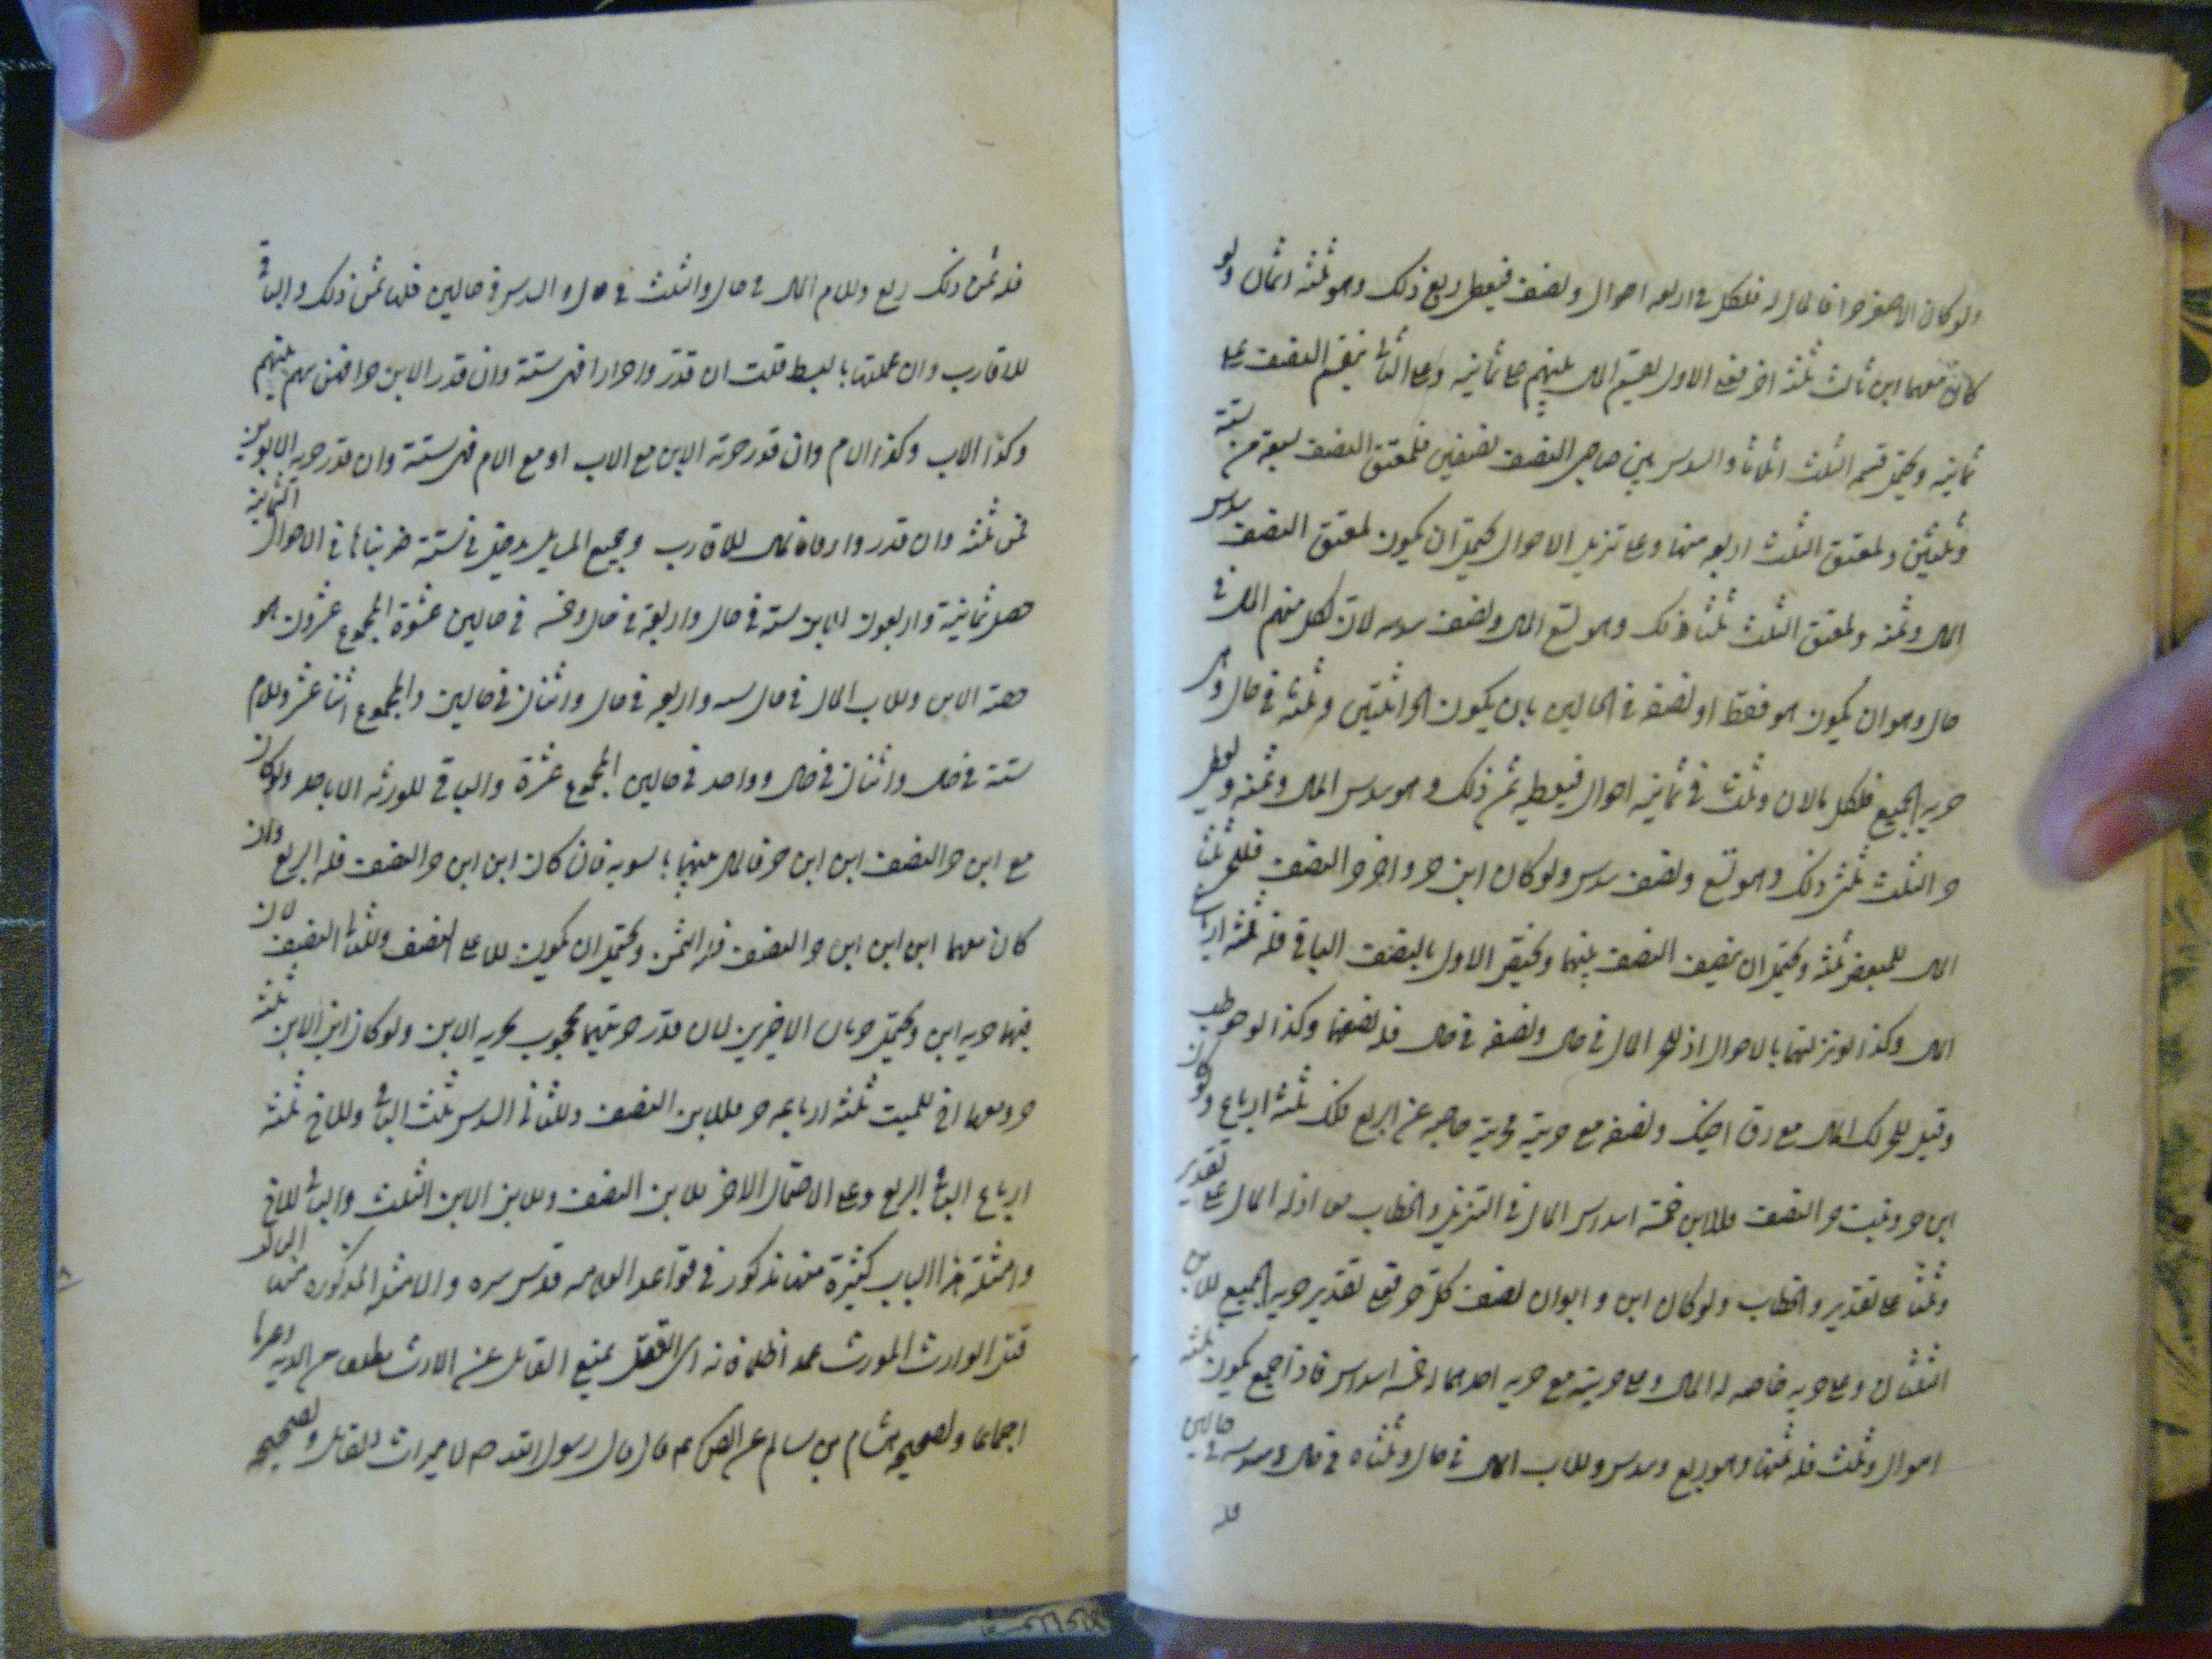 ولو كان الاصغر حرا فالمال له فللكل فى اربعه احوال ونصف فيعطى ربع ذلك وهو ثلثه اثمان ولو
كان معهما ابن ثالث ثلثه اخر فعلى الاول يقسم المال بينهم على ثمانيه وعلى الثانى يقسم النصف على
ثمانيه ويحتمل قسمه الثلث اثلاثا والسدس بين صاحبى النصف نصفين فلمعتق النصف سبعه من ستة
وثلثين ولمعتق الثلث اربعه منها وعلى تنزيل الاحوال يحتمل ان يكون لمعتق النصف سدس
المال وثمنه ولمعتق الثلث ثلثا ذلك وهو تسع المال ونصف سدسه لان لكل منهم المال فى
حال وهو ان يكون هو فقط او نصفه فى الحالين بان يكون احرا اثنين وثلثه فى حال وهى
حريه الجميع فللكل مالان وثلث فى ثمانيه احوال فيعطيه ثمن ذلك وهو سدس المال وثمنه ويعطى
حر الثلث ثلثى ذلك وهو تسع ونصف سدس ولو كان ابن حر واخر حر النصف فللحر ثلثا
المال للمبعض ثلثه ويحتمل ان تنصيف النصف بينهما ويختص الاول بالنصف الباقى فله ثلثه ارباع
المال وكذا لو نزلتهما بالاحوال اذ للحر المال فى حال ونصفه فى حال فله نصفهما وكذا لو خوطب
وقيل للحر لك المال مع رق اخيك ونصفه مع حريته فحريته حاجبه عن الربع فلك ثلثه ارباع ولو كان
ابن حر وبنت حر النصف فللابن خمسة اسداس المال فى التنزيل والخطاب معا اذ له المال على تقدير
وثلثا على تقدير والخطاب ولو كان ابن و ابوان نصف كل حر فعلى تقدير حريه الجميع للابن
الثلثان وعلى حريه خاصه له المال وعلى حريته مع حريه احدهما له خمسه اسداس فاذا جمع يكون ثلثه
احوال وثلث فله ثمنها وهو ربع وسدس وللاب المال فى حال وثلثاه فى حال وسدسه فى حالين
فله
فله ثمن ذلك ربع وللام المال فى حال والثلث فى حال والسدس فى حالين فلها ثمن ذلك والباقى
للاقارب وان عملتها بالبسط قلت ان قدر واحرارا فهى ستة وان قدر الابن حرا فهى سهم
وكذا الاب وكذا الام وان قدر حرية الابن مع الاب او مع الام فهى ستة وان قدر حريه الابوين
فمن ثلثه وان قدر وارقا فالمال للاقارب وجميع المسايل يدخل فى ستة ضربناها فى الاحوال الثمانية
حصل ثمانية واربعون للابن ستة فى حال واربعة فى حال وخمسة فى حالين عشرة المجموع عشرون هو
حصه الابن وللاب المال فى حال ستة واربعه فى حال واثنان فى حالين والمجموع اثنا عشر وللام
ستة فى حال واثنان فى حال وواحد فى حالين المجموع عشرة والباقى للورثه الاباعد ولو كان
مع ابن حر النصف ابن ابن حر فالمال بينهما بالسويه فان كان ابن ابن حر النصف فله الربع وان
كان معهما ابن ابن ابن حر النصف فله الثمن ويحتمل ان يكون للاعلى النصف وللثانى النصف لان
فيهما حريه ابن ويحتمل حرمان الاخيرين لان قدر حريتهما محجوب بحريه الابن ولو كان ابن الابن ثلثه
حر ومعهما اخ للميت ثلثه ارباعه حر فللابن النصف وللثانى السدس ثلث الباقى وللاخ ثلثه
ارباع الباقى الربع وعلى الاحتمال الاخر للابن النصف ولابن الابن الثلث والباقى للاخ
وامثلة هذا الباب كثيرة منها مذكور فى قواعد العلامه قدس سره والامثله المذكوره منها
قتل الوارث المورث عمدا ظلما فانه اى القتل يمنع القاتل عن الارث مطلقا من الديه وغيرها
اجماعا ولصحيحه هشام بن سالم عن الصادق عم قال قال رسول الله ص لا ميراث للقاتل ولصحيحه